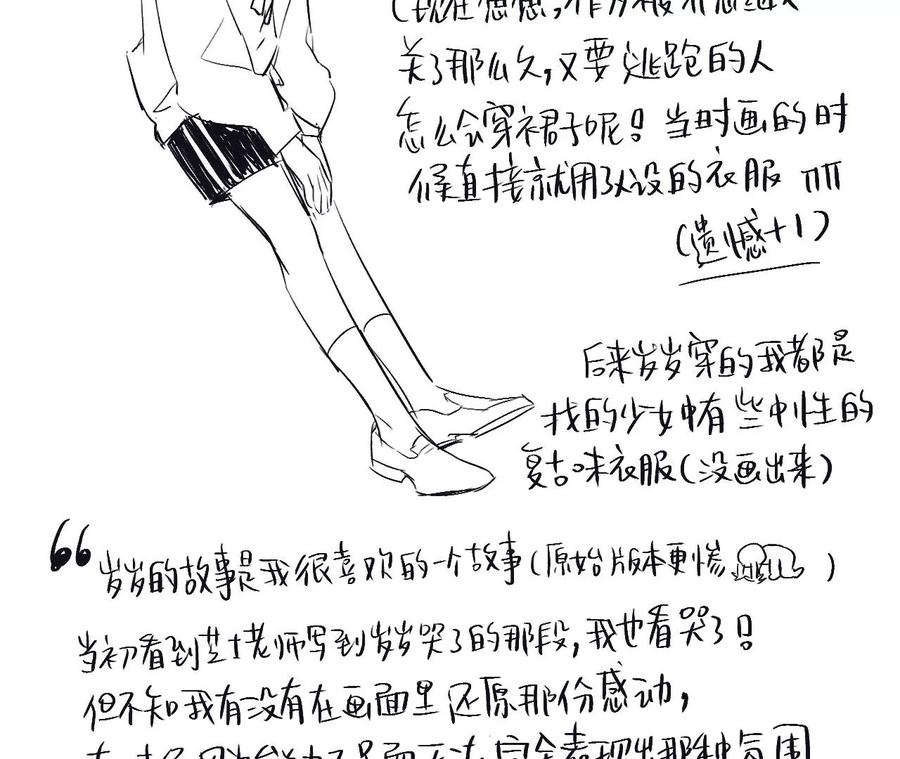 (现在想想,作为被
关了那么久,又要逃跑的人
怎么会穿裙子呢!当时画的时
候直接就用了人设的衣服 TTTT
(遗憾+1)
后来岁岁穿的我都是
找的少女中有些中性的
复古味衣服(没画出来)
“岁岁的故事是我很喜欢的一个故事(原始版本更惨)
当初看到芝士老师写到岁岁哭了的那段,我也看哭了!
但不知我有没有在画面里还原那份感动,
完全表现出那种氛围